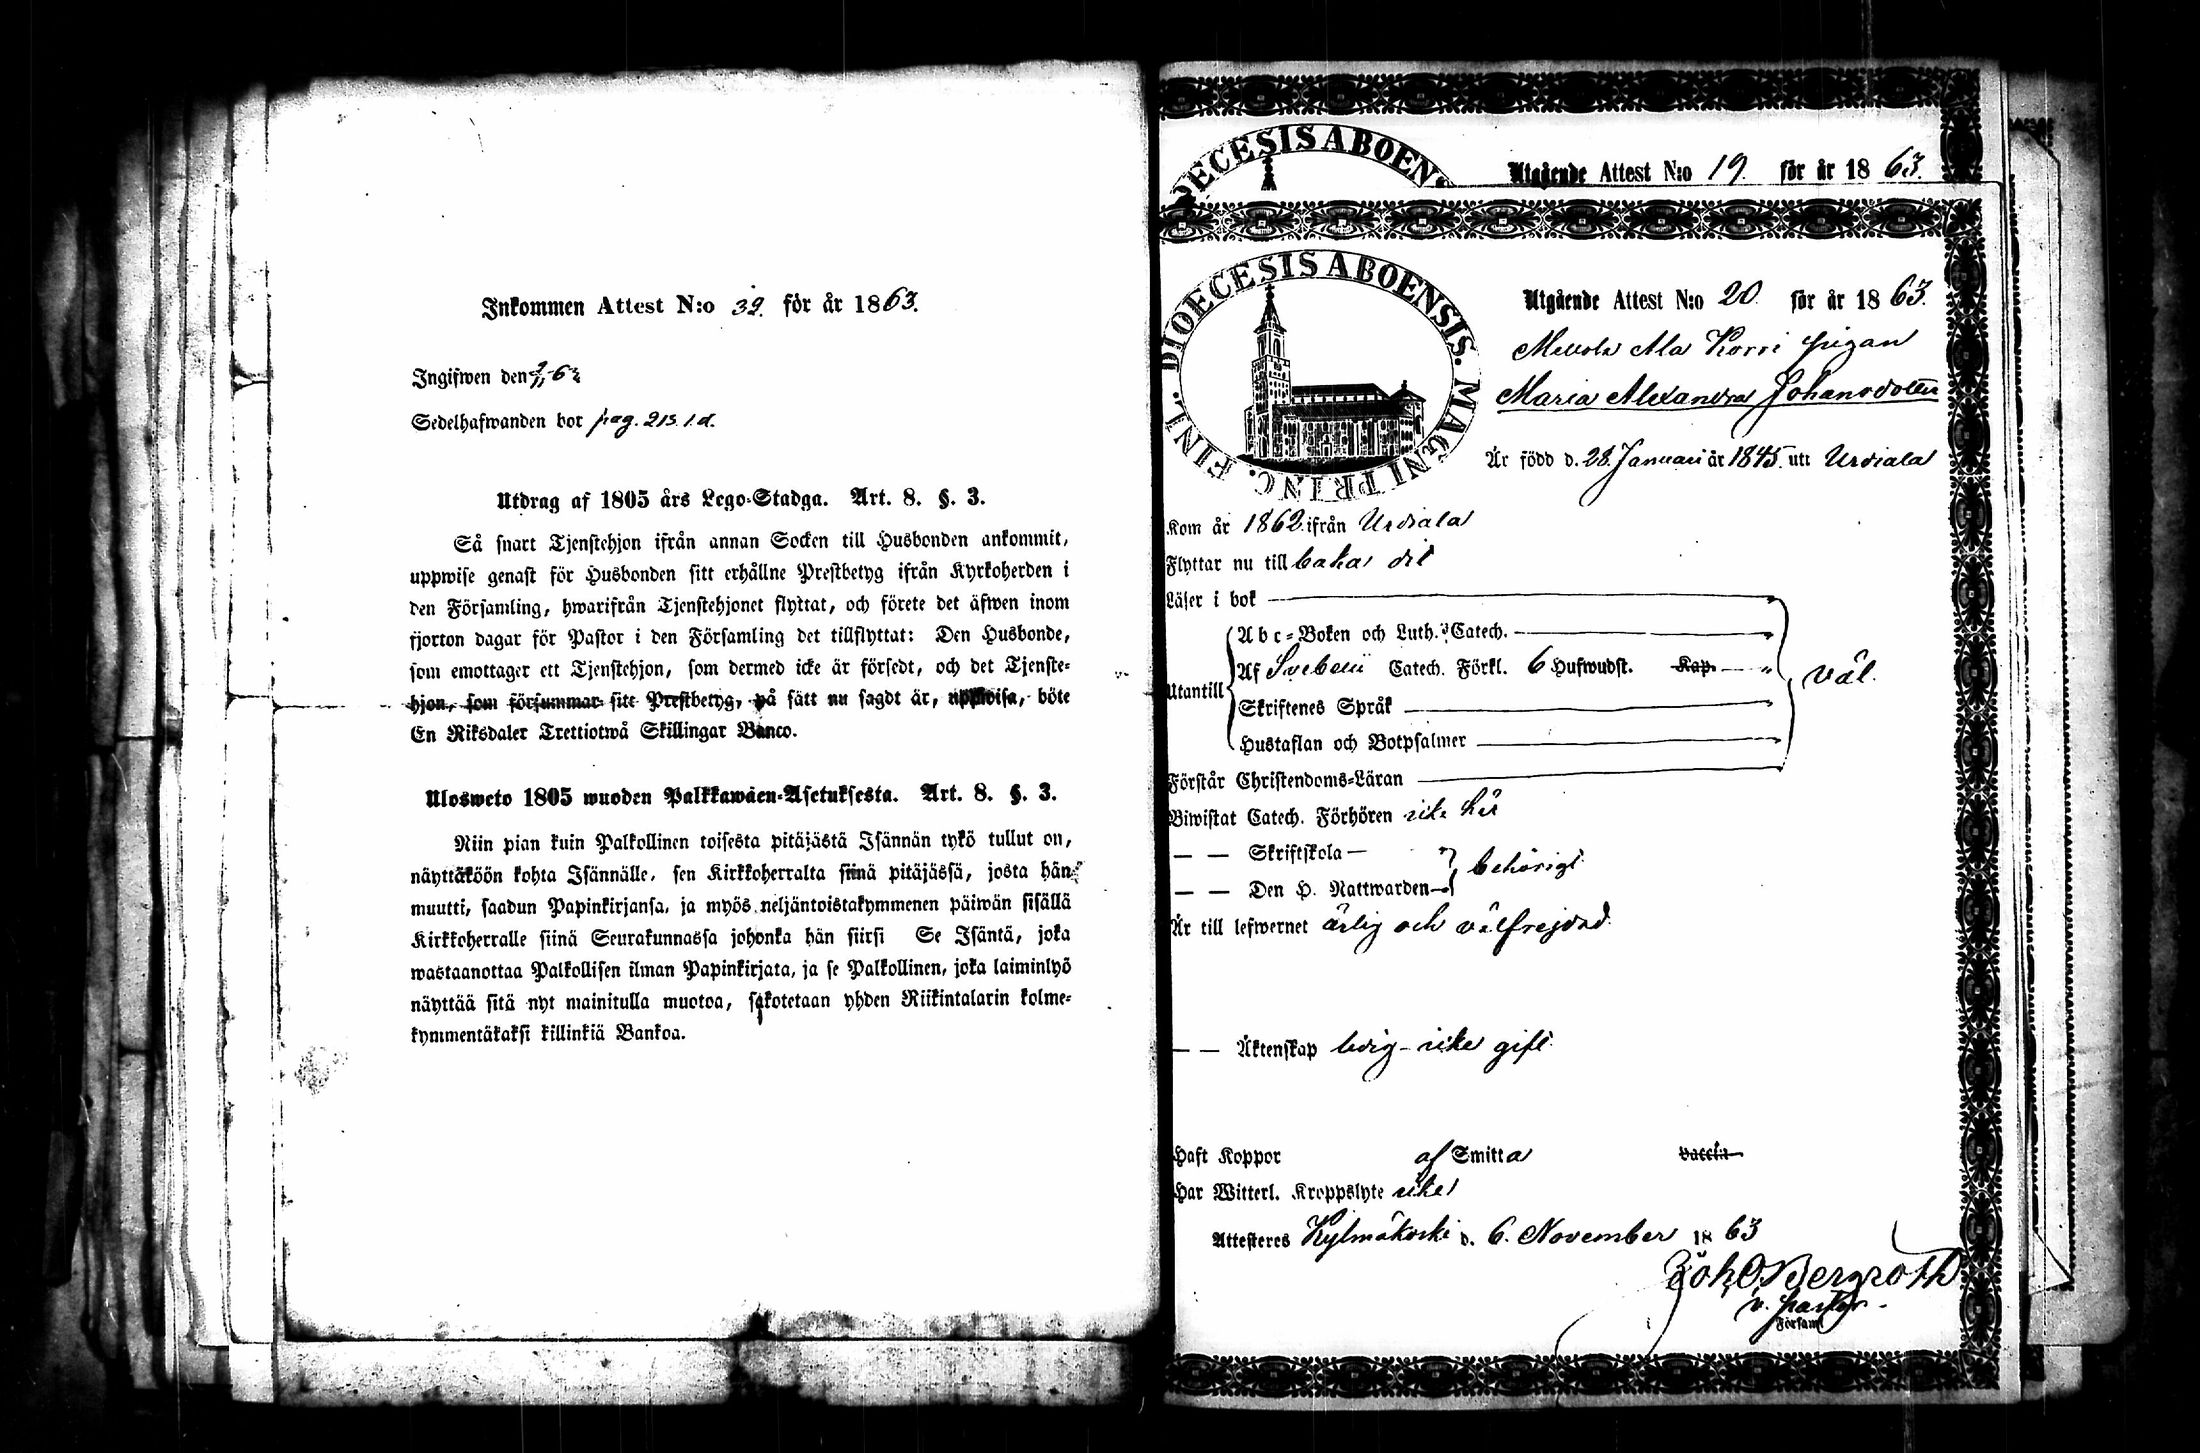 Inkommen Attest N:o 39. för år 1863.
Ingifwen den
Sedelhafwanden bor pag. 213. l. d.
Utdrag af 1805 års Lego-Stadga. Art. 8. §. 3.
Så snart Tjenstehjon ifrån annan Socken till Husbonden ankommit,
uppwise genast för Husbonden sitt erhållne Prestbetyg ifrån Kyrkoherden i
den Församling, hwarifrån Tjenstehjonet flyttat, och förete det äfwen inom
fjorton dagar för Pastor i den Församling det tillflyttat: Den Husbonde,
som emottager ett Tjenstehjon, som dermed icke är försedt, och det Tjenste-
hjon, som försummar sitt Prestbetyg, på sätt nu sagdt är, uppwisa, böte
En Riksdaler Trettiotwå Skillingar Banco.
Ulosweto 1805 wuoden Palkkawäen-Asetuksesta. Art. 8. §. 3.
Niin pian kuin Palkollinen toisesta pitäjästä Isännän tykö tullut on,
näyttäköön kohta Isännälle, sen Kirkkoherralta siinä pitäjässä, josta hän
muutti, saadun Papinkirjansa, ja myös neljäntoistakymmenen päiwän sisällä
Kirkkoherralle siinä Seurakunnassa johonka hän siirsi Se Isäntä, joka
wastaanottaa Palkollisen ilman Papinkirjata, ja se Palkollinen, joka laiminlyö
näyttää sitä nyt mainitulla muotoa, sakotetaan yhden Riikintalarin kolme-
kymmentäkaksi killinkiä Bankoa.
DIOECESIS ABOEN
Utgående Attest N:o 19. för år 1863.
DIOECESIS ABOENSIS. MAGNI PRINC. FINL.
Utgående Attest N:o 20 för år 1863.
Mellola Ala Korri pigan
Maria Alexandra Johansdotter
Är född d. 28. Januari år 1845. uti Urdiala
Kom år 1862. ifrån Urdiala
Flyttar nu till baka dit
Läser i bok
Utantill
Abc-Boken och Luth. Catech.
Af Svebelii Catech. Förkl. 6 Hufwudst. Kap.
Skriftenes Språk
Hustaflan och Botpsalmer
väl.
Förstår Christendoms-Läran
Biwistat Catech. Förhören icke här
— — Skriftskola
— — Den H. Nattwarden
behörigt
Är till lefwernet ärlig och välfrejdad.
— — Äktenskap ledig - icke gift.
Haft Koppor af Smitta Vaccin
Har Witterl. Kroppslyte icke
Attesteres Kylmäkoski d. 6. November 1863
Joh. O. Bergroth
v. pastor.
Församl